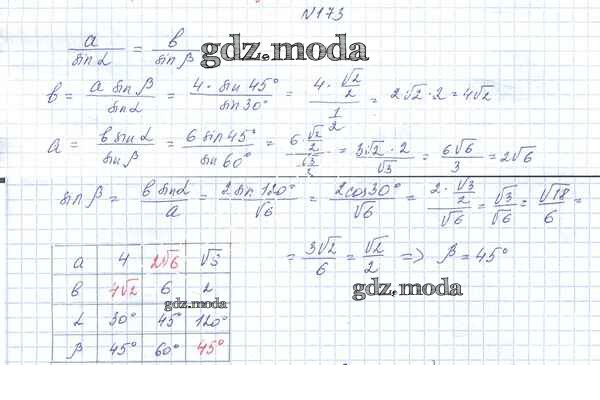 №173
a / sin α = b / sin β
gdz.moda
b = a sin β / sin α = 4 · sin 45° / sin 30° = 4 · √2/2 / 1/2 = 2√2 · 2 = 4√2
a = b sin α / sin β = 6 sin 45° / sin 60° = 6 · √2/2 / √3/2 = 3√2 · 2 / √3 = 6√6 / 3 = 2√6
sin β = b sin α / a = 2 sin 120° / √6 = 2 cos 30° / √6 = 2 · √3/2 / √6 = √3 / √6 = √18 / 6 =
= 3√2 / 6 = √2 / 2 => β = 45°
gdz.moda
a 4 2√6
b 4√2 6 2
gdz.moda
α 30° 45° 120°
β 45° 60° 45°